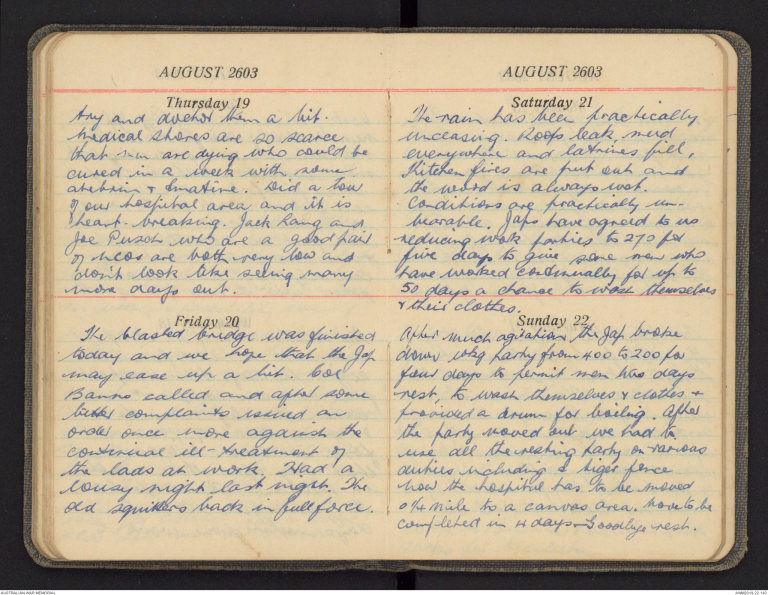 AUGUST 2603
Thursday 19
try and doctor them a bit.
Medical stores are so scarce
that men are dying who could be
cured in a week with some
atebrin & Emetine. Did a tour
of our hospital area and it is
heart-breaking. Jack Rang and
Joe Pusch who are a good pair
of ncos are both very low and
don't look like seeing many
more days out.
Friday 20
The blasted bridge was finished
today and we hope that the Jap
may ease up a bit. Col
Banno called and after some
bitter complaints issued an
order once more against the
continual ill-treatment of
the lads at work. Had a
lousy night last night. The
old squitters back in full force.
AUGUST 2603
Saturday 21
The rain has been practically
unceasing. Roofs leak, mud
everywhere and latrines fill,
Kitchen fires are put out and
the wood is always wet.
Conditions are practically un-
bearable. Japs have agreed to us
reducing work parties to 270 for
five days to give some men who
have worked continually for up to
50 days a chance to wash themselves
& their clothes.
Sunday 22
After much agitation the Jap broke
down wkg party from 400 to 200 for
four days to permit men two days
rest, to wash themselves & clothes &
provided a drum for boiling. After
the party moved out we had to
use all the resting party on various
duties including a tiger fence
Now the hospital has to be moved
one mile to a canvas area. Move to be
completed in 4 days - Goodbye rest.
AUSTRALIAN WAR MEMORIAL